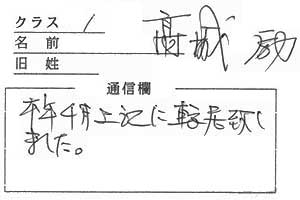 クラス 1
名前 髙城 励
旧姓
通信欄
本年4月上記に転居致し
ました。